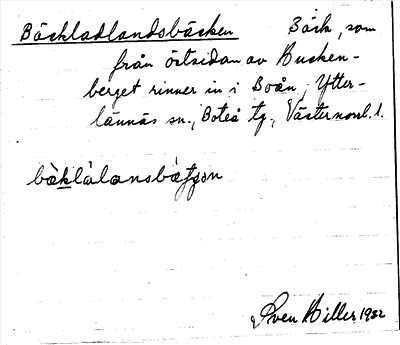 Bäckladlandsbäcken Bäck, som
från östsidan av Busken-
berget rinner in i Boån, Ytter-
lännäs sn., Boteå tg., Västernorrl. l.
Sven Hiller 1932